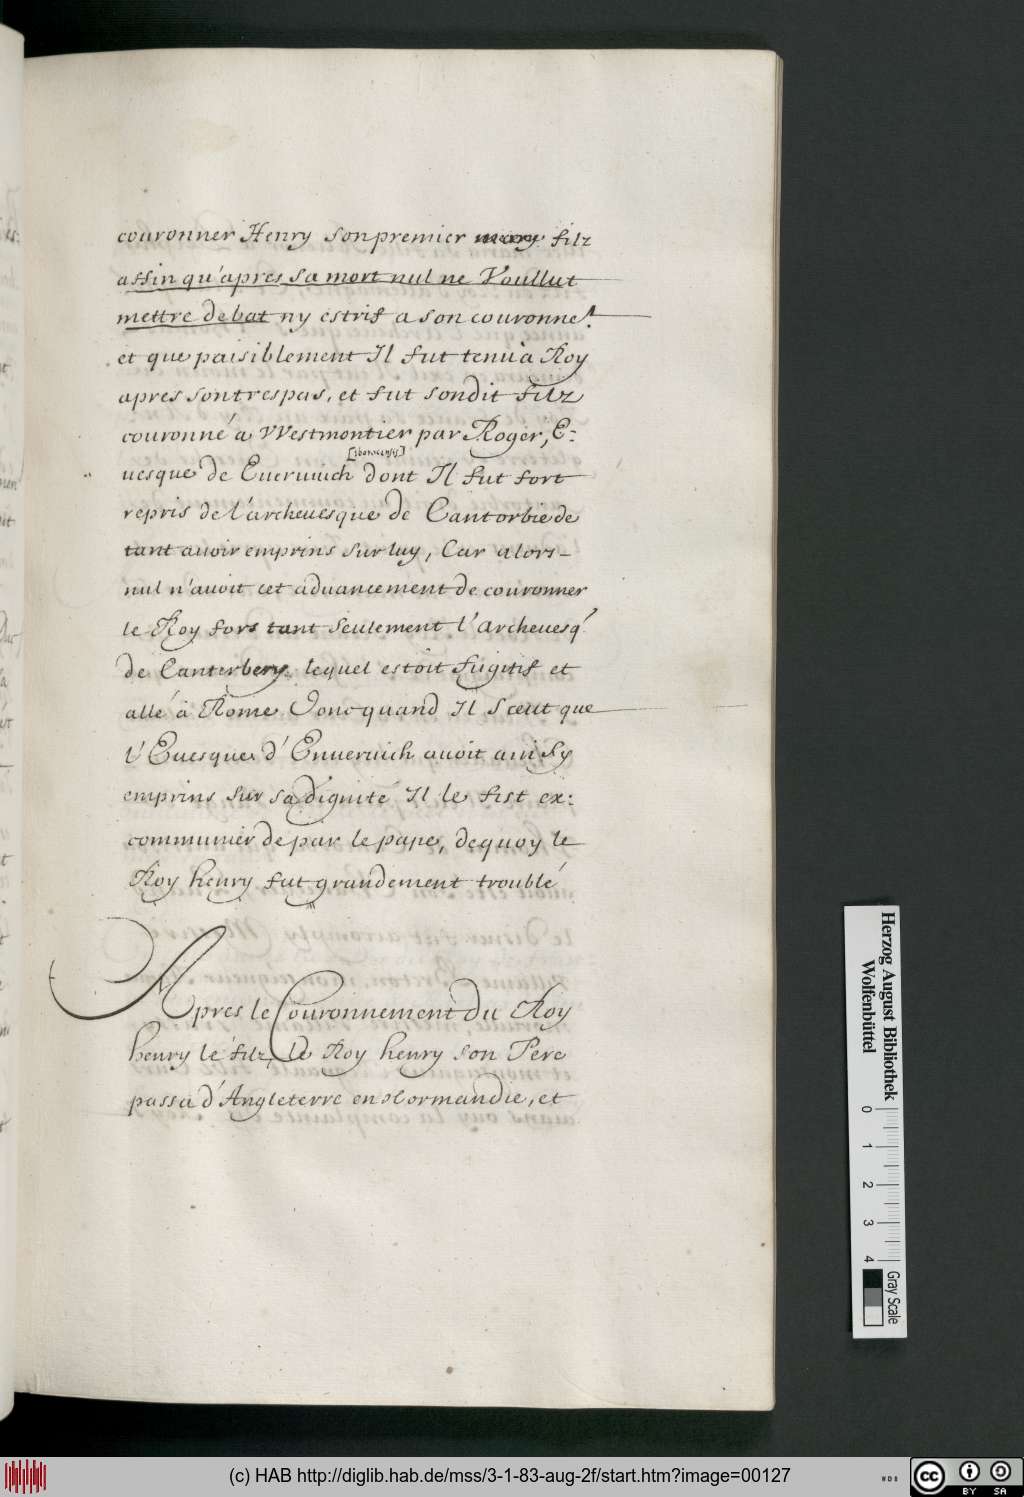 couronner Henry son premier mary filz
affin qu'apres sa mort nul ne Voullut
mettre debat ny estrif a son couronnet
et que paisiblement Il fut tenu a Roy
apres son trespas, et fut sondit filz
couronné a VVestmontier par Roger, E:
uesque de Eueruuich dont Il fut fort
repris de l'archeuesque de Cantorbie de
tant auoir emprins sur luy, Car alors
nul n'auoit cet aduancement de couronner
le Roy fors tant seulement l'Archeuesq'
de Canterbery lequel estoit fugitif et
allé à Rome Donc quand Il sceut que
l'Euesque d'Enueruich auoit ainsy
emprins sur sa dignité Il le fist ex:
communier de par le pape, de quoy le
Roy henry fut grandement troublé
Apres le Couronnement du Roy
henry le filz, le Roy henry son Pere
passa d'Angleterre en Normandie, et
Herzog August Bibliothek
Wolfenbüttel
0 1 2 3 4
Gray Scale
(c) HAB http://diglib.hab.de/mss/3-1-83-aug-2f/start.htm?image=00127
WDB
cc BY SA